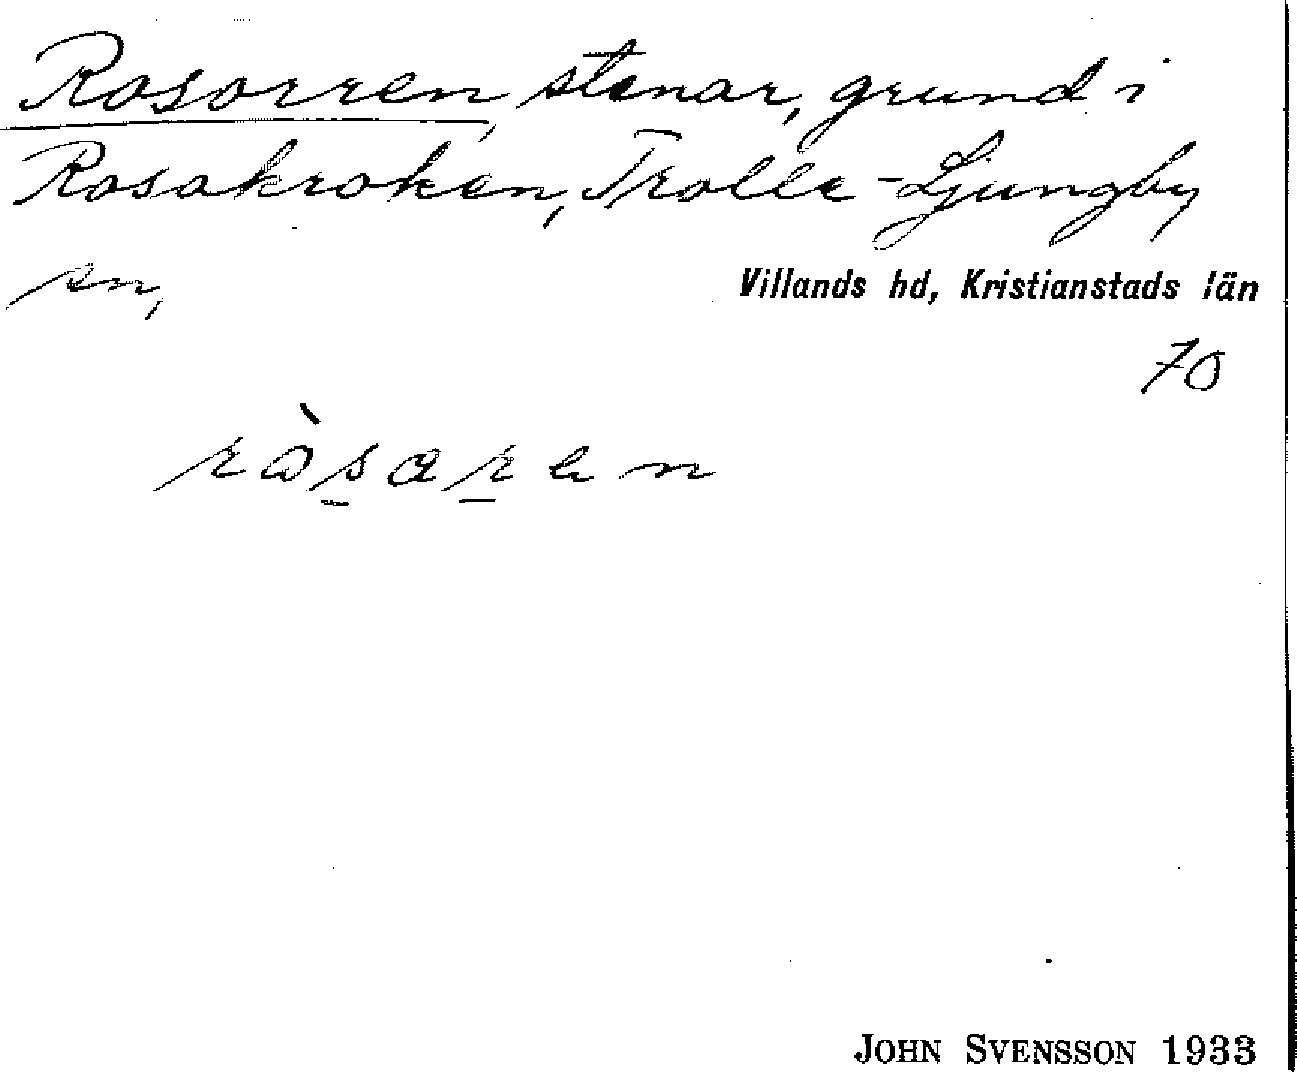 Rosorren, stenar, grund i
Rosakroken, Trolle-Ljungby
sn,
Villands hd, Kristianstads län
70
ròsa̱ṟen
JOHN SVENSSON 1933